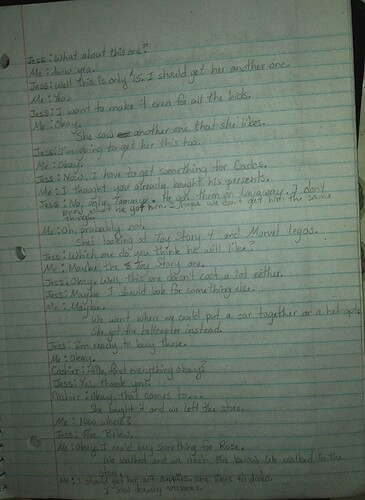 Jess: What about this one?
Me: Aww yea.
Jess: Well this is only $15. I should get her another one.
Me: Yea.
Jess: I want to make it even for all the kids.
Me: Okay.
She saw another one that she likes.
Jess: I'm going to get her this two.
Me: Okay.
Jess: Now, I have to get something for Carlos.
Me: I thought you already bought his presents.
Jess: No, only Tommy. He got them on layaway. I don't
know what he got him. I hope we don't get him the same
things.
Me: Oh, probably not.
She's looking at Toy Story 4 and Marvel legos.
Jess: Which one do you think he will like?
Me: Maybe the Toy Story one.
Jess: Okay. Well, this one doesn't cost a lot either.
Jess: Maybe I should look for something else.
Me: Maybe.
We went where we could put a car together or a helicopter.
She got the helicopter instead.
Jess: I'm ready to buy these.
Me: Okay.
Cashier: Hello, find everything okay?
Jess: Yes, thank you.
Cashier: Okay, that comes to....
She bought it and we left the store.
Me: Now where?
Jess: Five Below.
Me: Okay. I could buy something for Rose.
We walked and we reach five below. We walked to the
store.
Me: I should get her art supplies. She likes to draw.
I saw drawing notebooks.